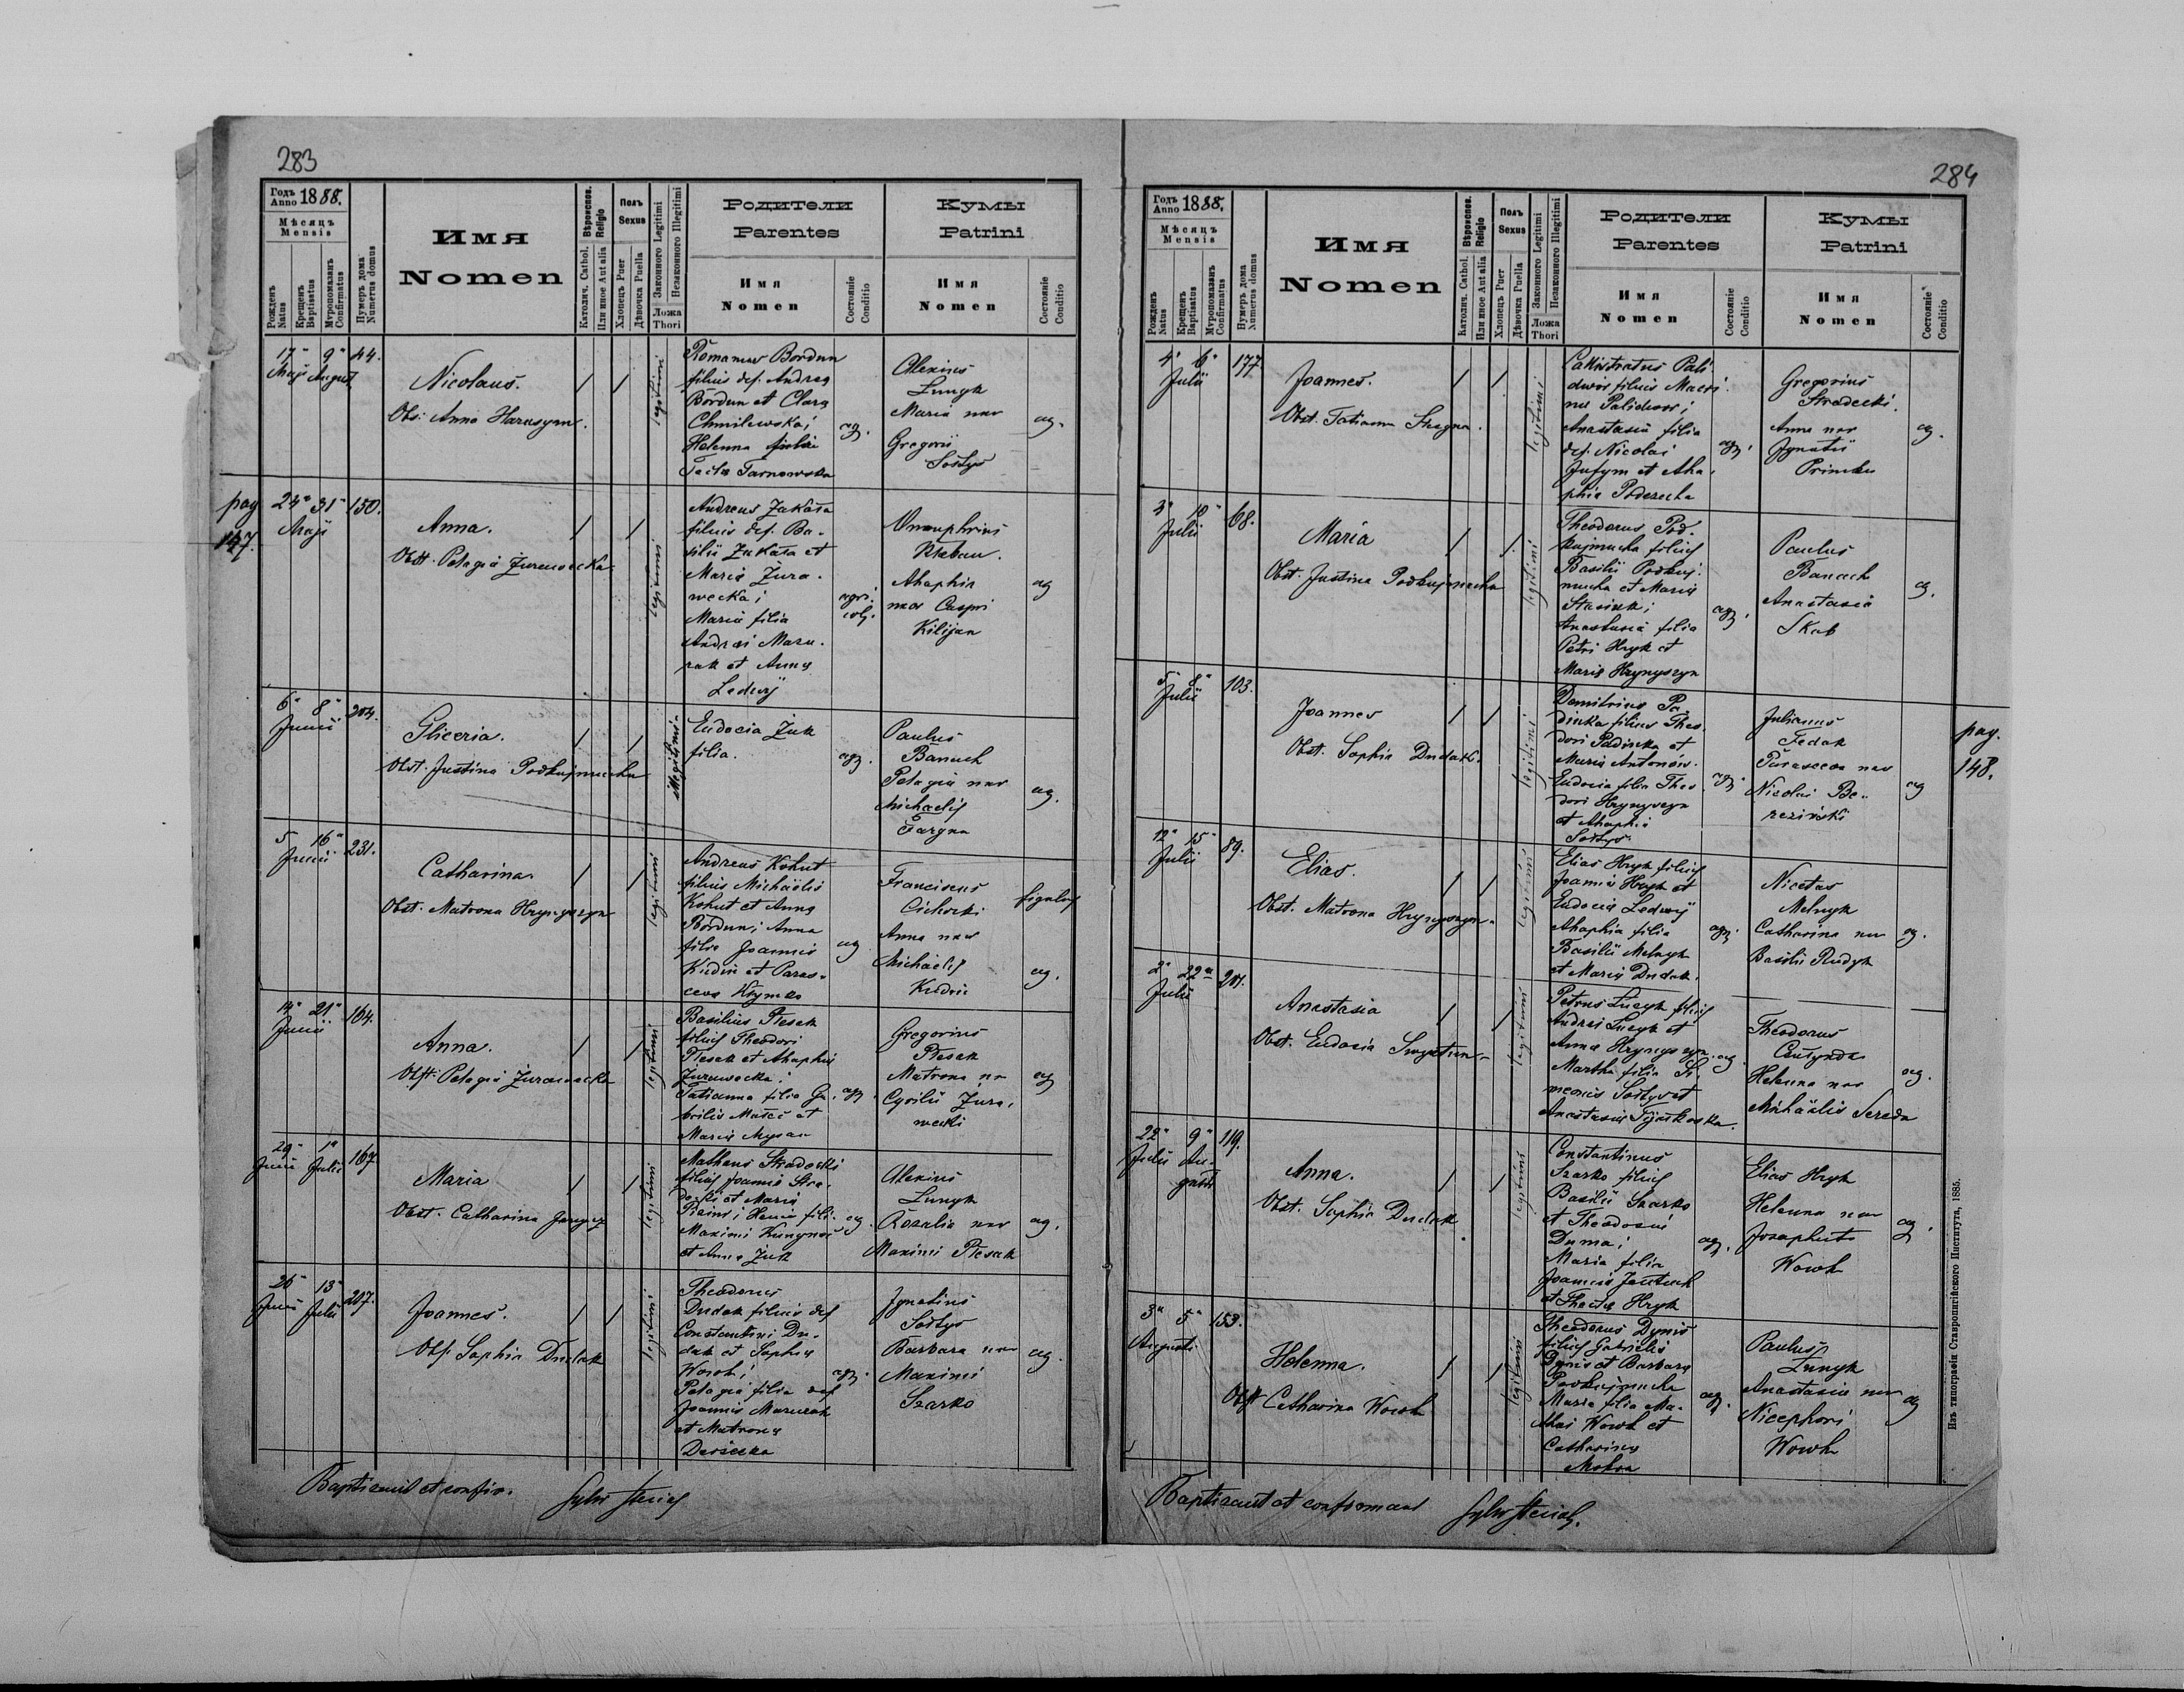 283
Годъ Anno 1888.
Мѣсяцъ
Mensis
Рожденъ Natus
Крещенъ Baptisatus
Мѵропомазанъ Confirmatus
Нумеръ дома Numerus domus
Имя
Nomen
Вѣроиспов. Religio
Католич. Cathol.
Или иное Aut alia
Полъ
Sexus
Хлопецъ Puer
Дѣвочка Puella
Законного Legitimi
Незаконного Illegitimi
Ложа
Thori
Родители
Parentes
Имя
Nomen
Состояніе
Conditio
Кумы
Patrini
Имя
Nomen
Состояніе
Conditio
17" 9" 44.
Maji August
Nicolaus.
Obs: Anna Harasym.
legitimi
Romanus Bordun
filius def. Andreą
Bordun et Clarą
Chmilewska;
Helenna
Tecla Tarnowska
ag.
Alexius
Lunyk
Maria uxor
Gregorii
Sołtys
ag.
pag
147.
24" 31" 150.
Maji
Anna.
Obst. Pelagia Żurawecka
legitimi
Andreas Zakała
filius def. Ba-
silii Zakała et
Maria Żura-
wecka;
Maria filia
Andrei Mazu-
rak et Anną
Ledwij
agri-
col.
Onuphrius
Ahaphia
uxor Caspri
Kilijan
ag
6" 8" 204.
Junii
Gliceria.
Obst. Justina Podkujmucha
illegitimi
Eudocia Żuk
filia.
ag.
Paulus
Banach
Pelagia uxor
Michaelis
Fargna
ag.
5 16" 231.
Junii
Catharina.
Obst. Matrona Hrynyszyn
legitimi
Andreas Kohut
filius Michaëlis
Kohut et Anną
Bordun; Anna
filia Joannis
Kudui et Paras-
ceva Krymko
ag
Franciscus
Cichocki
figulus
Anna uxor
Michaelis
ag.
14" 21" 164.
Junii
Anna.
Obst: Pelagia Żurawecka
legitimi
Basilius Plesak
filius Theodori
Plesak et Ahaphią
Żurawecka;
Tatianna filia Ga-
brilis et
Marią
ag.
Gregorius
Plesak
Matrona ux
Cyrilii Żura-
wecki
ag
29" 1" 167
Junii Julii
Maria
Obst. Catharina
legitimi
Matheus Stradecki
filius Joannis Stra-
decki et Marią
filia
Maximi
et Anną Żuk
ag.
Alexius
Lunyk
Rozalia uxor
Maximi Plesak
ag.
26" 13" 207.
Junii Julii
Joannes.
Obs. Sophia Dudak
legitimi
Theodorus
Dudak filius def
Constantini Du-
dak et Sophią
Wowk;
Pelagia filia def
Joannis Mazurak
et Matroną
ag.
Ignatius
Sołtys
Barbara uxor
Maximi
Szarko
ag.
Baptisavit et confir.
284
Годъ Anno 1888.
Мѣсяцъ
Mensis
Рожденъ Natus
Крещенъ Baptisatus
Мѵропомазанъ Confirmatus
Нумеръ дома Numerus domus
Имя
Nomen
Вѣроиспов. Religio
Католич. Cathol.
Или иное Aut alia
Полъ
Sexus
Хлопецъ Puer
Дѣвочка Puella
Законного Legitimi
Незаконного Illegitimi
Ложа
Thori
Родители
Parentes
Имя
Nomen
Состояніе
Conditio
Кумы
Patrini
Имя
Nomen
Состояніе
Conditio
4" 6" 177.
Julii
Joannes.
Obst. Tatianna
legitimi
Callistratus Pali-
dwor filius
Palidwor;
Anastasia filia
def. Nicolai
et Aha-
phia
ag.
Gregorius
Stradecki.
Anna uxor
Ignatii
ag.
3" 10" 68.
Julii
Maria
Obst. Justina Podkujmucha
legitimi
Theodorus Pod-
kujmucha filius
Basilii Podkuj-
mucha et Marią
Anastasia filia
Petri Hryk et
Marią Hrynyszyn
ag.
Paulus
Banach
Anastasia
Skab
ag.
5" 8" 103.
Julii
Joannes
Obst. Sophia Dudak.
legitimi
Demitrius Pa-
dinka filius Theo-
dori Padinka et
Maria Antonow.
Eudocia filia Theo-
dori Hrynyszyn
et Ahaphia
Sołtys.
ag.
Julianus
Fedak
Parascewa uxor
Nicolai Be-
rezinski
ag
pag.
148.
12" 15" 89.
Julii
Elias.
Obst. Matrona Hrynyszyn.
legitimi
Elias Hryk filius
Joannis Hryk et
Eudocia Ledwij
Ahaphia filia
Basilii Melnyk
et Marią Dudak.
ag.
Nicetas
Melnyk
Catharina uxor
Basilii Rudyk
ag.
2" 22" 201.
Julii
Anastasia
Obst. Eudocia
legitimi
Petrus Lucyk filius
Andrei Lucyk et
Anna Hrynyszyn.
Martha filia Si-
meonis Sołtys et
Anastasia
ag.
Theodorus
Helenna uxor
Michäelis Sereda
ag.
22" 9" 119.
Julii Au-
gusti
Anna.
Obst. Sophia Dudak
legitimi
Constantinus
Szarko filius
Basilii Szarko
et Theodosia
Duma;
Maria filia
Joannis
et Hryk
ag.
Elias Hryk
Helenna uxor
Josaphata
Wowk
ag.
3" 5" 153.
Augusti
Helenna.
Obst Catharina Wowk
legitimi
Theodorus Dynis
filius Gabrielis
Dynis et Barbara
Podkujmucha
Maria filia Ma-
thei Wowk et
Catharina
Mokra
ag.
Paulus
Lunyk
Anastasia uxor
Nicephori
Wowk
ag
Baptisavit et confirmavit
Изъ типографіи Ставропигійского Института, 1885.